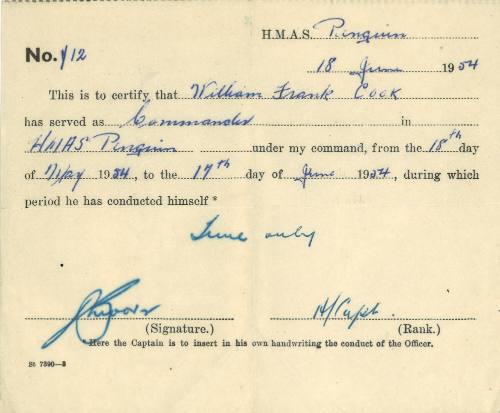 H.M.A.S. Penguin
No. 1/12
18 June 1954
This is to certify that William Frank Cook
has served as Commander in
HMAS Penguin under my command, from the 18th day
of May 1954, to the 17th day of June 1954, during which
period he has conducted himself *
Time only
A/Capt.
(Signature.) (Rank.)
* Here the Captain is to insert in his own handwriting the conduct of the Officer.
St 7390—3